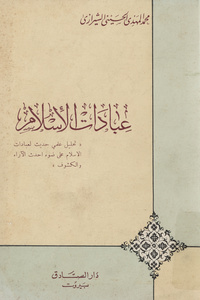 محمد المهدي الحسيني الشيرازي
عبادات الإسلام
« تحليل علمي حديث لعبادات
الاسلام على ضوء احدث الآراء
والكشوف »
دار الصادق
بيروت